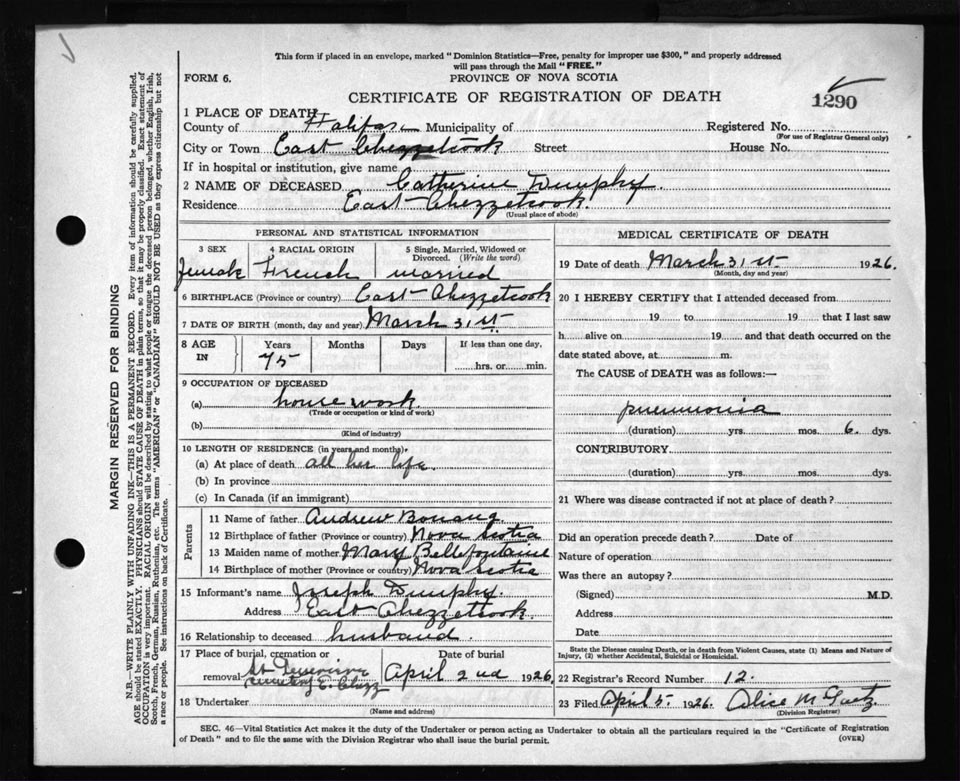 This form if placed in an envelope, marked "Dominion Statistics—Free, penalty for improper use $300," and properly addressed
will pass through the Mail "FREE."
FORM 6.
PROVINCE OF NOVA SCOTIA
CERTIFICATE OF REGISTRATION OF DEATH
1290
1 PLACE OF DEATH
County of Halifax Municipality of Registered No.
(For use of Registrar General only)
City or Town East Chezzetcook Street House No.
If in hospital or institution, give name
2 NAME OF DECEASED Catherine Dumphy.
Residence East Chezzetcook.
(Usual place of abode)
PERSONAL AND STATISTICAL INFORMATION
3 SEX 4 RACIAL ORIGIN 5 Single, Married, Widowed or
Divorced. (Write the word)
Female French married
6 BIRTHPLACE (Province or country) East Chezzetcook
7 DATE OF BIRTH (month, day and year) March 31st
8 AGE IN Years Months Days If less than one day,
75 hrs. or min.
9 OCCUPATION OF DECEASED
(a) house work
(Trade or occupation or kind of work)
(b)
(Kind of industry)
10 LENGTH OF RESIDENCE (in years and months).
(a) At place of death all her life.
(b) In province
(c) In Canada (if an immigrant)
Parents
11 Name of father Andrew Bonang
12 Birthplace of father (Province or country) Nova Scotia
13 Maiden name of mother Mary Bellefontaine
14 Birthplace of mother (Province or country) Nova Scotia
15 Informant's name Joseph Dumphy.
Address East Chezzetcook.
16 Relationship to deceased husband.
17 Place of burial, cremation or Date of burial
removal St cemetery E. Chezz April 2nd 1926
18 Undertaker
(Name and address)
MEDICAL CERTIFICATE OF DEATH
19 Date of death March 31st 1926.
(Month, day and year)
20 I HEREBY CERTIFY that I attended deceased from
19 to 19 that I last saw
h alive on 19 and that death occurred on the
date stated above, at m.
The CAUSE of DEATH was as follows:—
pneumonia
(duration) yrs. mos. 6. dys.
CONTRIBUTORY
(duration) yrs. mos. dys.
21 Where was disease contracted if not at place of death?
Did an operation precede death? Date of
Nature of operation
Was there an autopsy?
(Signed) M.D.
Address
Date
State the Disease causing Death, or in death from Violent Causes, state (1) Means and Nature of
Injury, (2) whether Accidental, Suicidal or Homicidal.
22 Registrar's Record Number 12.
23 Filed April 5. 1926. Alice M Gaetz
(Division Registrar)
SEC. 46—Vital Statistics Act makes it the duty of the Undertaker or person acting as Undertaker to obtain all the particulars required in the "Certificate of Registration
of Death" and to file the same with the Division Registrar who shall issue the burial permit. (OVER)
MARGIN RESERVED FOR BINDING
N.B.—WRITE PLAINLY WITH UNFADING INK—THIS IS A PERMANENT RECORD. Every item of information should be carefully supplied.
AGE should be stated EXACTLY. PHYSICIANS should STATE CAUSE OF DEATH in plain terms, so that it may be properly classified. Exact statement of
OCCUPATION is very important. RACIAL ORIGIN will be described by stating to what people or tongue the deceased person belonged, whether English, Irish,
Scotch, French, German, Russian, Ruthenian, etc. The terms "AMERICAN" or "CANADIAN" SHOULD NOT BE USED as they express citizenship but not
a race or people. See instructions on back of Certificate.